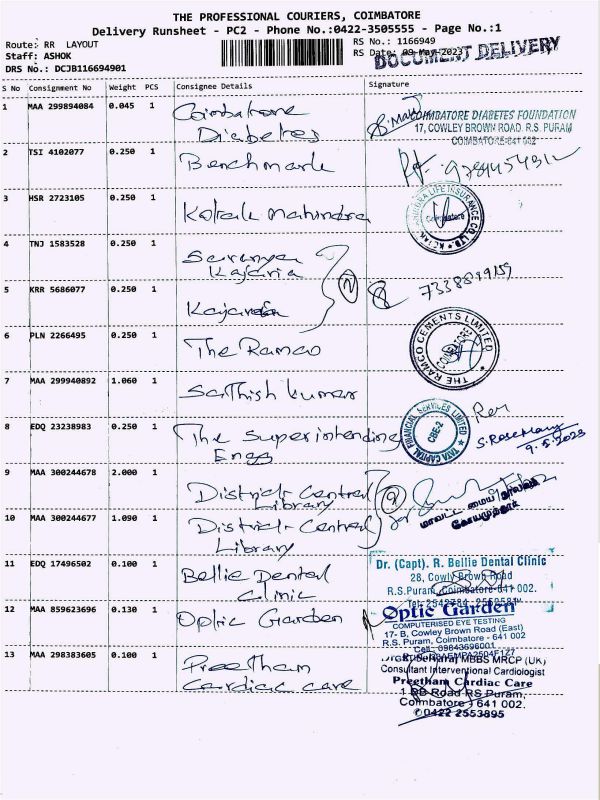 THE PROFESSIONAL COURIERS, COIMBATORE
Delivery Runsheet - PC2 - Phone No.:0422-3505555 - Page No.:1
Route: RR LAYOUT
RS No.: 1166949
Staff: ASHOK
RS Date: 09-May-2023
DOCUMENT DELIVERY
DRS No.: DCJB116694901
S No Consignment No Weight PCS Consignee Details Signature
1 MAA 299894084 0.045 1 Coimbatore
Diabetes
COIMBATORE DIABETES FOUNDATION
17, COWLEY BROWN ROAD, R.S. PURAM
COIMBATORE-641 002
2 TSI 4102077 0.250 1 Benchmark
3 HSR 2723105 0.250 1 Kotak Mahindra
4 TNJ 1583528 0.250 1 Saranya
Kajaria
5 KRR 5686077 0.250 1 Kajaria
7338899159
6 PLN 2266495 0.250 1 The Ramco
THE RAMCO CEMENTS LIMITED
7 MAA 299940892 1.060 1 Sathish kumar
TATA CAPITAL FINANCIAL SERVICES LIMITED
CBE-2
8 EDQ 23238983 0.250 1 The Superintending
Engg
S. Rosemary
9.5.2023
9 MAA 300244678 2.000 1 District Central
Library
மாவட்ட மைய நூலகம்
10 MAA 300244677 1.090 1 District Central
Library
11 EDQ 17496502 0.100 1 Bellie Dental
Clinic
Dr. (Capt). R. Bellie Dental Clinic
28, Cowly Brown Road
R.S.Puram, Coimbatore-641 002.
12 MAA 859623696 0.130 1 Optic Garden
Optic Garden
COMPUTERISED EYE TESTING
17- B, Cowley Brown Road (East)
R.S. Puram, Coimbatore - 641 002
Cell : 09843696001
13 MAA 298383605 0.100 1 Preetham
Cardiac care
MBBS MRCP (UK)
Consultant Interventional Cardiologist
Preetham Cardiac Care
1 DB Road RS Puram,
Coimbatore - 641 002.
✆0422 2553895